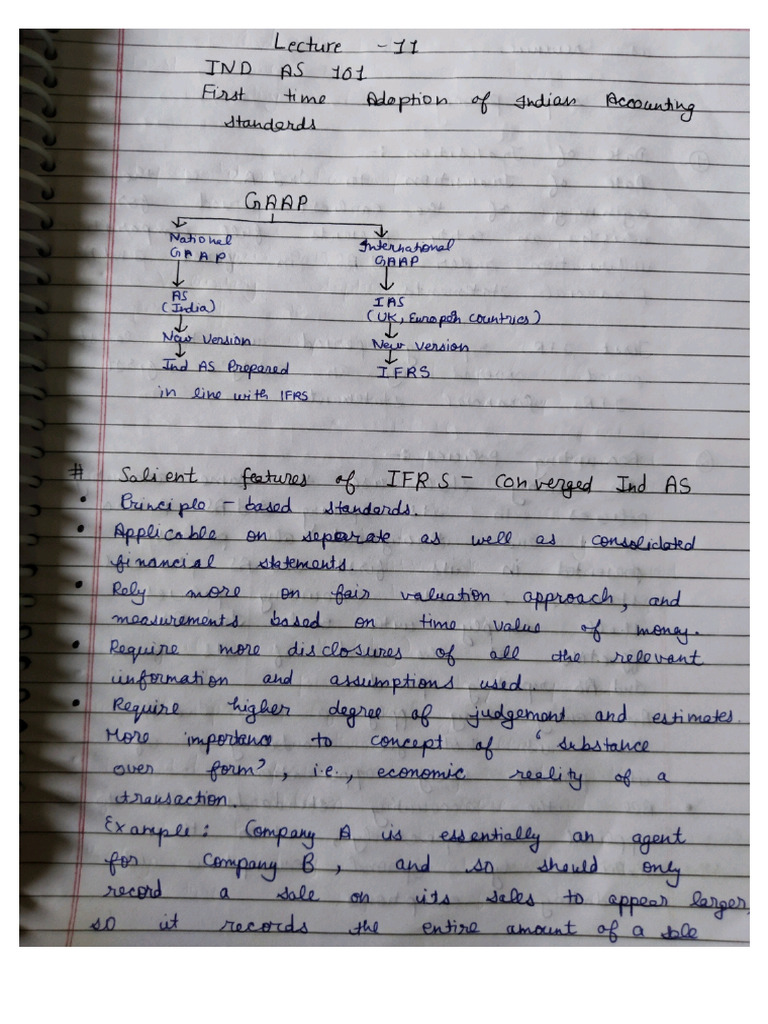 Lecture - 11
IND AS 101
First time Adoption of Indian Accounting
standerds
GAAP
National International
GAAP GAAP
AS IAS
(India) (UK, Europen Countries)
New Version New Version
Ind AS Prepared IFRS
in line with IFRS
# Salient features of IFRS - Converged Ind AS
• Principle - based standerds.
• Applicable on seperate as well as consolidated
financial statements.
• Rely more on fair valuation approach, and
measurements based on time value of money.
• Require more disclosures of all the relevant
information and assumptions used.
• Require higher degree of judgement and estimates.
More importance to concept of 'substance
over form', i.e., economic reality of a
transaction.
Example: Company A is essentially an agent
for Company B, and so should only
record a sale on its sales to appear larger,
so it records the entire amount of a sale